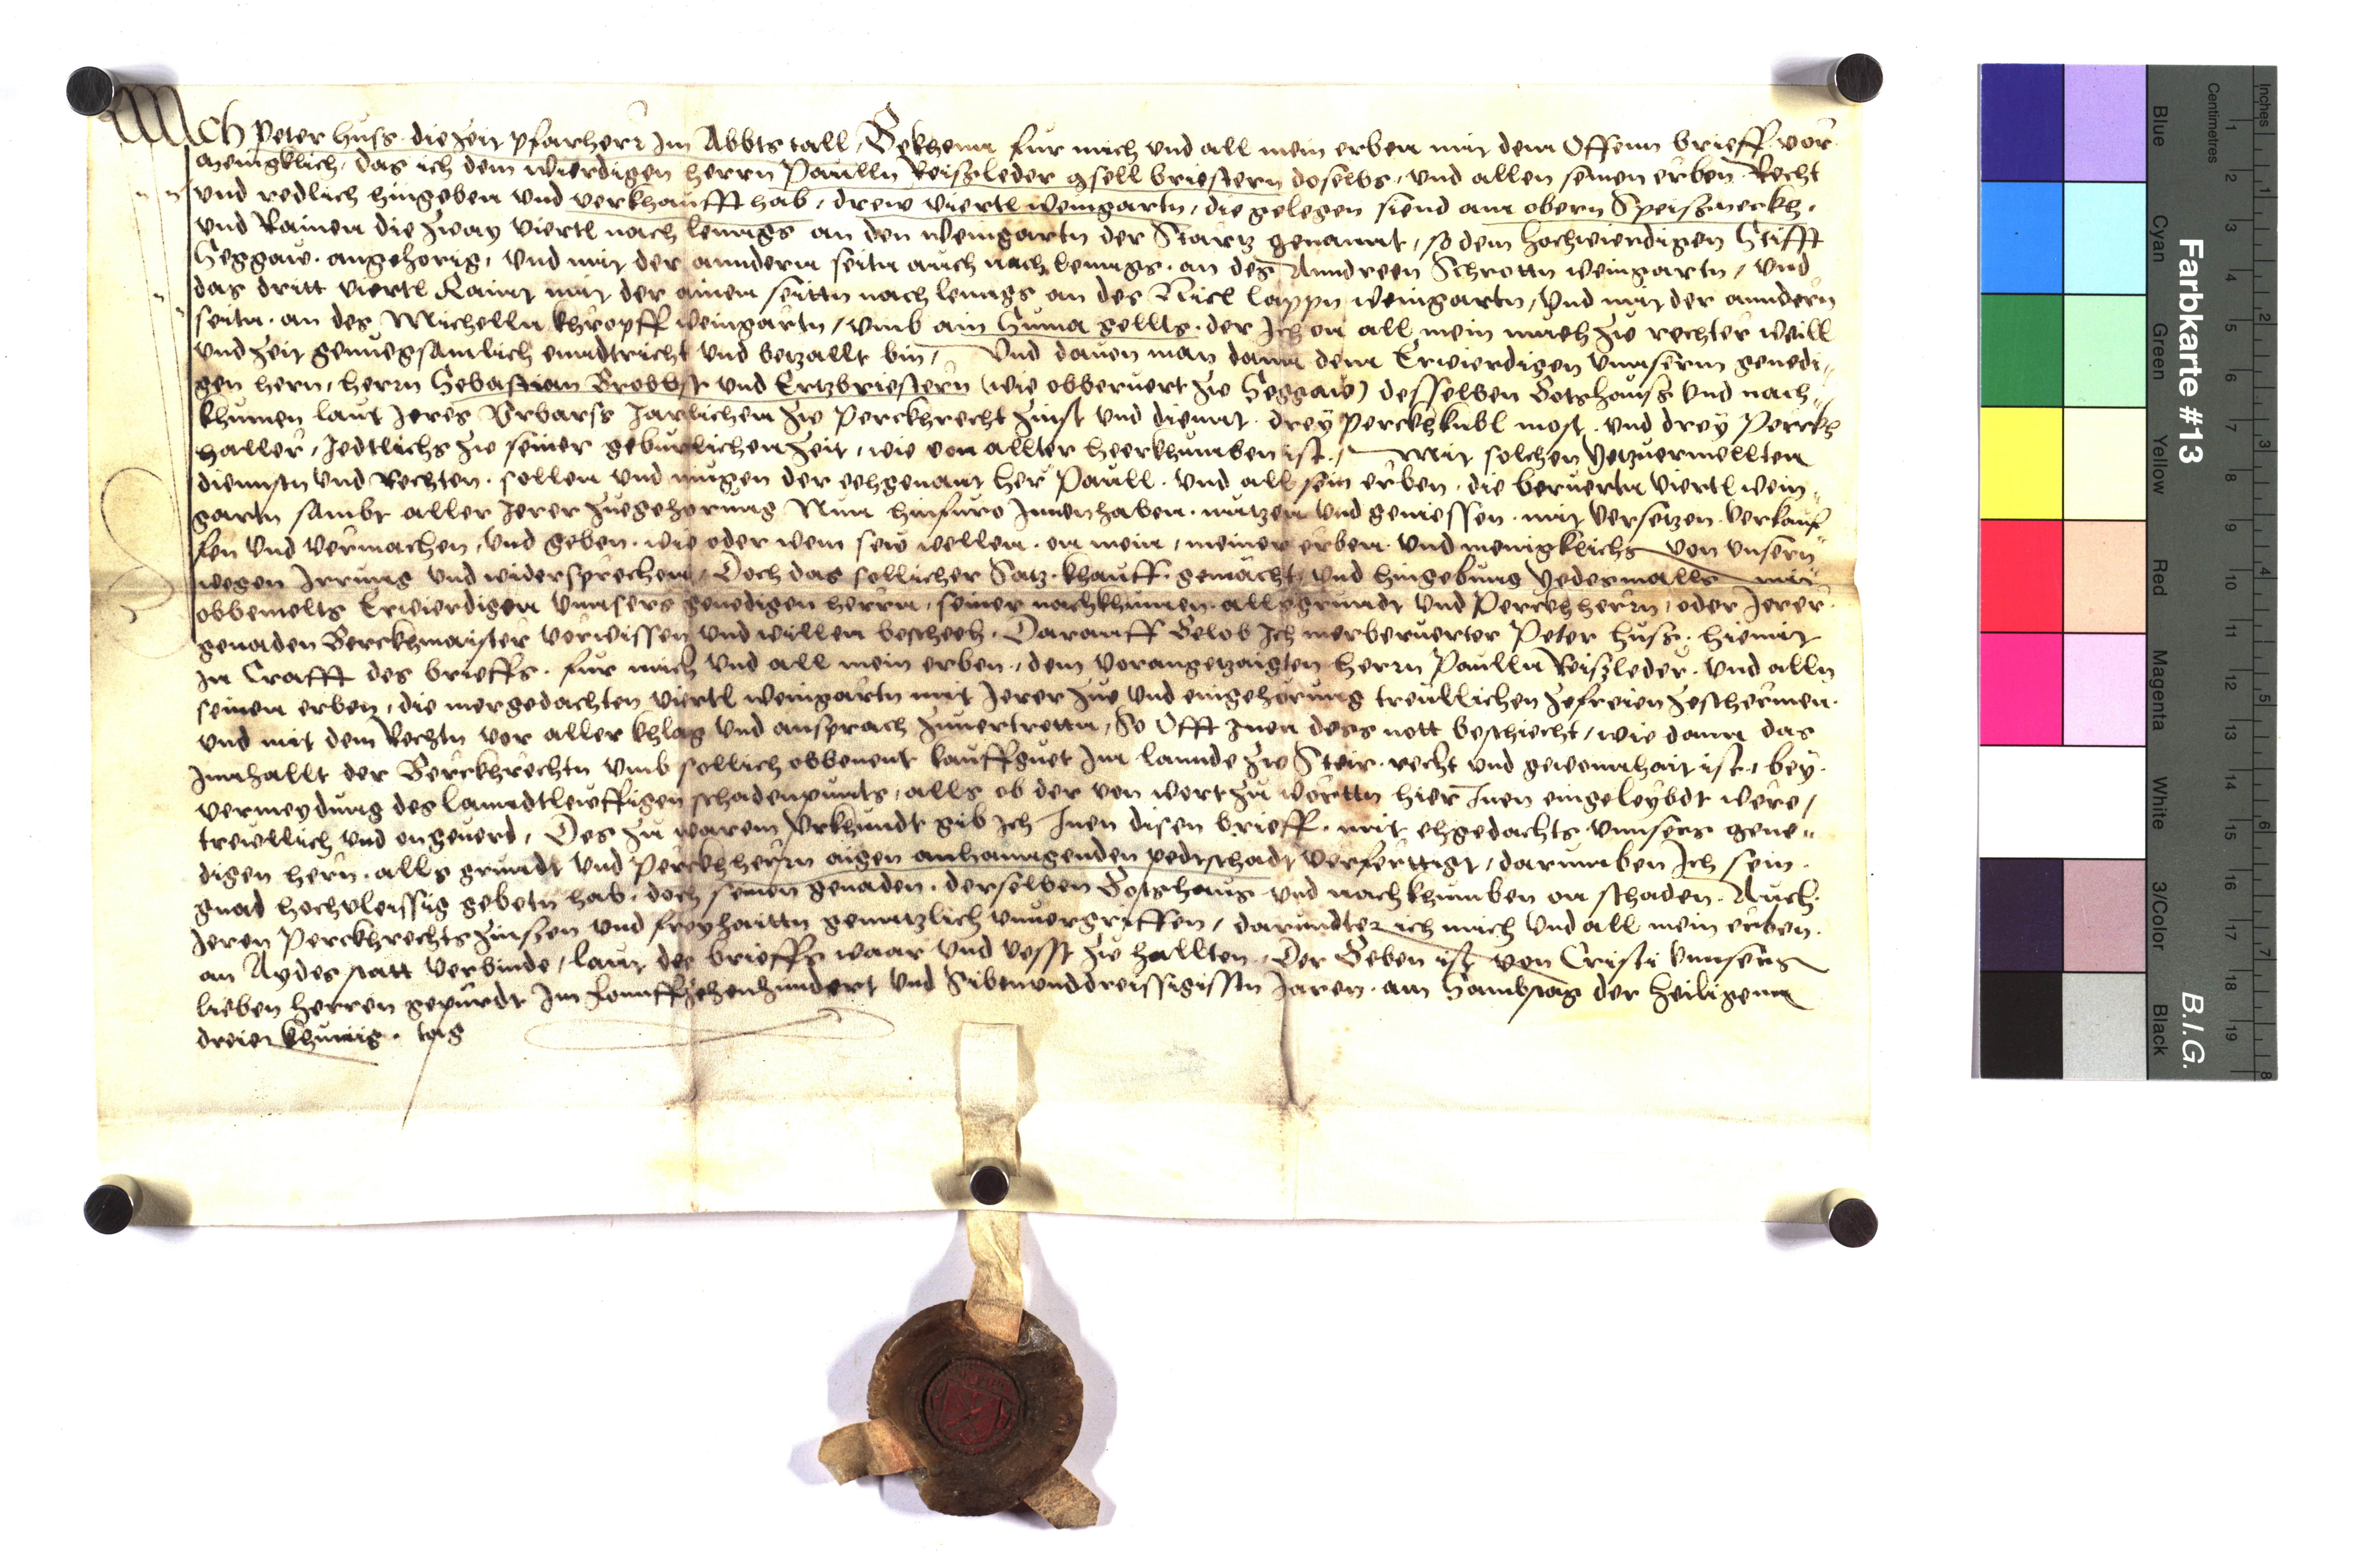 Ich Peter Huss die Zeit pfarherr Im Abbts tall, Bekhenn fur mich vnd all mein erben mit dem Offenn brieff vor
menigklich, das ich dem wierdigen herrn Paulln Reiszleder gsell briestern doselbs, vnd allen seinen erben Recht
vnd redlich hingeben vnd verkhaufft hab, drew viertl weingartn, die gelegen siend am obern Speiszneckh,
vnd Rainen die Zway viertl nach lenngs an den weingartn der Startz genannt, so dem hochwierdigen Stifft
Seggaw angehorig, vnd mit der anndern seitn auch nach lenngs an des Anndreen Schrottn weingartn, vnd
das dritt viertl Raint mit der ainen seittn nach lenngs an des Nicl lappn weingartn, vnd mit der anndern
seitn an des Michelln khropff weingartn, vmb ain Suma gellts, der Ich on all mein mueh Zw rechter weill
vnd Zeit genuegsamlich enndtricht vnd betzallt bin, Vnd dauon man dann dem Erwierdigen vnnserm genedi-
gen hern, herrn Sebastian Brobbst vnd Ertzbriestern (wie obberuert Zw Seggaw) desselben Gotshauss vnd nach-
khumen laut Jeres Vrbarss Jarlichen Zw Perckhrecht Zinst vnd diennt drey perckhkubl most vnd drey Perckh
haller, Jedtlichs Zw seiner geburlichen Zeit, wie von allter heerkhumben ist, Mit solchen Yetzuermellten
diennstn vnd Rechten sollen vnd mugen der eehgenant her Paull vnd all sein erben die beruertn viertl wein-
gartn sambt aller Jerer Zuegehorung Nun hinfuro Innenhaben nutzen vnd geniessen mit versetzen verkauf-
fen vnd vermachen, vnd geben wie oder wem sew wellen on mein, meiner erben vnd menigklichs von vnsern
wegen Irrung vnd widersprechen, Doch das sollicher Satz khauff gemacht, vnd hingebung Yedesmalls mit
obbemelts Erwierdigen vnnsers genedigen herrn, seiner nachkhumen alls grundt vnd Perckhherrn, oder Jerer
genaden Berckhmaister vorwissen vnd willen bescheeh. Darauff Gelob Ich merberuerter Peter Huss hiemit
In Crafft des brieffs fur mich vnd all mein erben, dem vorangetzaigten herrn Paulln Reiszleder vnd alln
seinen erben, die mergedachten viertl weingartn mit Jerer Zue vnd eingehorung treullichen Zefreien Zeschermen
vnd mit dem Rechtn vor aller khlag vnd ansprach Zuuertrettn, So Offt Inen dess nott beschiecht, wie dann das
Innhallt der Berckhrechtn vmb sollich obbenent kauffguet Im lannde Zw Steir recht vnd gewonnhait ist, bey
vermeydung des lanndtlewffigen schadenpunts, alls ob der von wort Zu worttn hier Inen eingeleybdt were,
trewllich vnd ongeuerd, Des Zu warem Vrkhundt gib Ich Inen disen brieff mit ehgedachts vnnsers gene-
digen hern alls grundt vnd Perckhherrn aigen anhanngenden pedtschadt verferttigt, darumben Ich sein
gnad hochvleissig gebetn hab, doch seinen genaden derselben Gotshaus vnd nachkhumben on schaden Auch
Jeren Perckhrechts Zinsen vnd freyhaittn genntzlich vnuergriffen, darundter ich mich vnd all mein erben
an Aydes statt verbinde, laut des brieffs waar vnd vesst Zw hallten, Der Geben ist von Cristi vnnsers
lieben herren gepurdt Im Funffzehenhundert vnd Sibnunddreissigistn Jaren am Sambstag der heiligenn
dreier khunig tag
Farbkarte #13
B.I.G.
Inches
Centimetres
1 2 3 4 5 6 7 8 9 10 11 12 13 14 15 16 17 18 19
1 2 3 4 5 6 7 8
Blue
Cyan
Green
Yellow
Red
Magenta
White
3/Color
Black